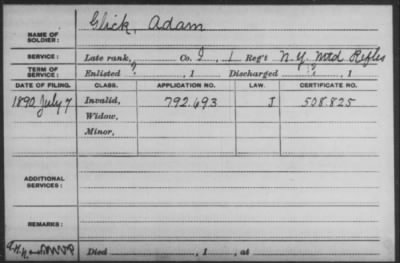 Glick, Adam
NAME OF SOLDIER:
SERVICE: Late rank, Co. I, 1 Reg't N.Y. Mtd Rifles
TERM OF SERVICE: Enlisted ?, 1 Discharged ?, 1
DATE OF FILING. CLASS. APPLICATION NO. LAW. CERTIFICATE NO.
1890 July 7 Invalid, 792.693 J 508.825
Widow,
Minor,
ADDITIONAL SERVICES:
REMARKS:
Died , 1 , at